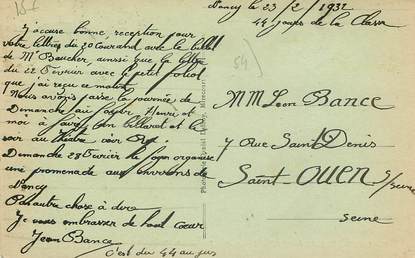 Nancy le 23/2/1932
44 jours de la Classe
J'accuse bonne réception pour
votre lettres du 20 courand avec le billet
de Mr Boucher, ainsi que la lettre
du 22 Fevrier avec le petit foliot
que j'ai reçu ce matin.
Nous avons passé la journée de
Dimanche au foyer Henri et
moi à jouer au billard et le
soir au théatre voir
Dimanche 28 Fevrier le foyer organise
une promenade aux environs de
Nancy
Pas autre chose à dire
Je vous embrasse de tout coeur
Jean Bance
c'est du 44 au jus
54
MM Leon Bance
7 rue Saint Denis
Saint-Ouen s/seine
Seine